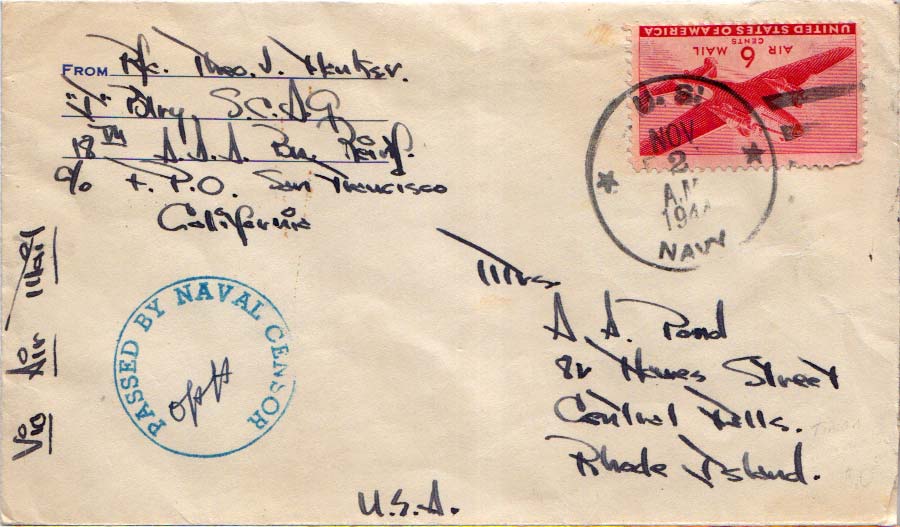 FROM Pfc. Theo. J.
Btry, S.C.A.G
18TH A.A.A. Bn. Reinf.
c/o F.P.O. San Francisco
California
UNITED STATES OF AMERICA
AIR 6 MAIL
CENTS
U.S.
NOV
2
A.M.
194
NAVY
Via Air Mail
PASSED BY NAVAL CENSOR
Mrs
A. A. Pond
Street
Central Falls.
Rhode Island.
U.S.A.